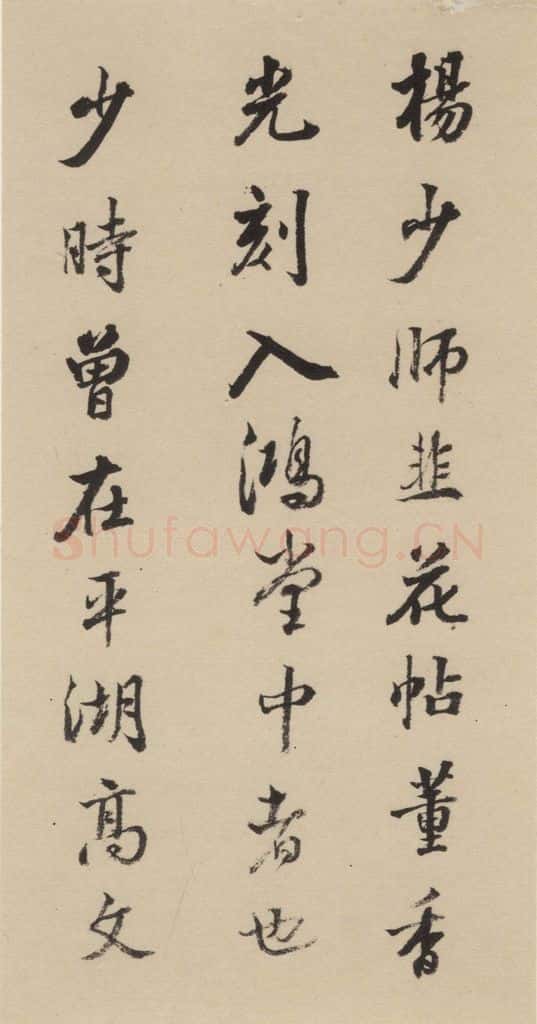 楊少師韭花帖董香
光刻入鴻堂中者也
少時曽在平湖高文
Shufawang.CN